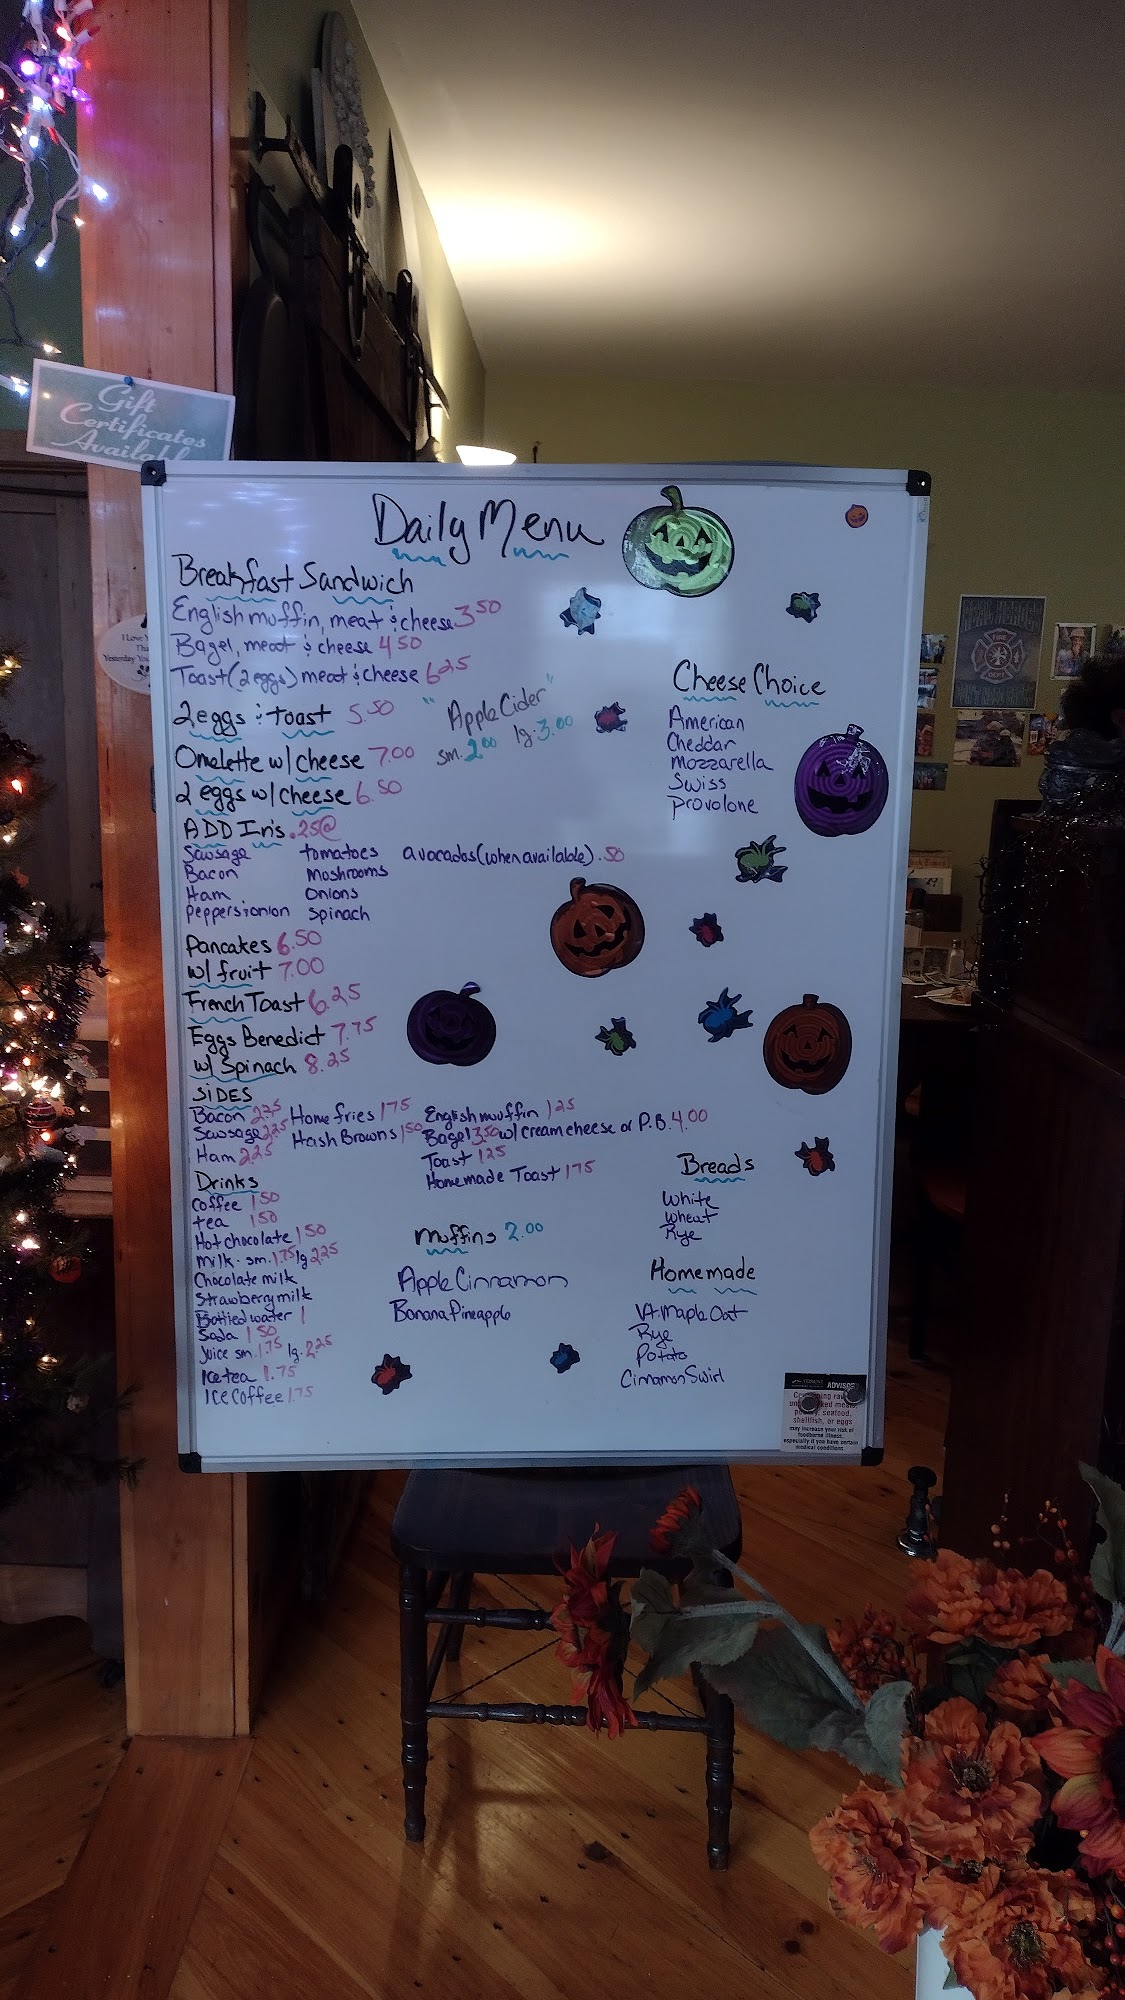 Gift
Certificates
Available
Daily Menu
Breakfast Sandwich
English muffin, meat & cheese 3.50
Bagel, meat & cheese 4.50
Toast (2 eggs) meat & cheese 6.25
2 eggs & toast 5.50
"Apple Cider"
sm. 2.00 lg. 3.00
Omelette w/ cheese 7.00
2 eggs w/ cheese 6.50
ADD In's .25@
Sausage tomatoes avocados (when available) .50
Bacon Moshrooms
Ham Onions
Peppers & onion Spinach
Pancakes 6.50
w/ fruit 7.00
French Toast 6.25
Eggs Benedict 7.75
w/ Spinach 8.25
Cheese Choice
American
Cheddar
Mozzarella
Swiss
Provolone
SIDES
Bacon 2.25 Home fries 1.75 English muffin 1.25
Sausage 2.25 Hash Browns 1.50 Bagel 3.50 w/ cream cheese or P.B. 4.00
Ham 2.25 Toast 1.25
Homemade Toast 1.75
Drinks
Coffee 1.50
tea 1.50
Hot chocolate 1.50
Milk - sm. 1.75 lg 2.25
Chocolate milk
Strawberry milk
Bottled water 1
Soda 1.50
Juice sm. 1.75 lg. 2.25
Ice tea 1.75
Ice Coffee 1.75
Muffins 2.00
Apple Cinnamon
Banana Pineapple
Breads
White
Wheat
Rye
Homemade
Vt Maple Oat
Rye
Potato
Cinnamon Swirl
ADVISORY
meats,
poultry, seafood,
shellfish, or eggs
may increase your risk of
foodborne illness,
especially if you have certain
medical conditions
I Love Y
Tha
Yesterday You
FIRE
DEPT